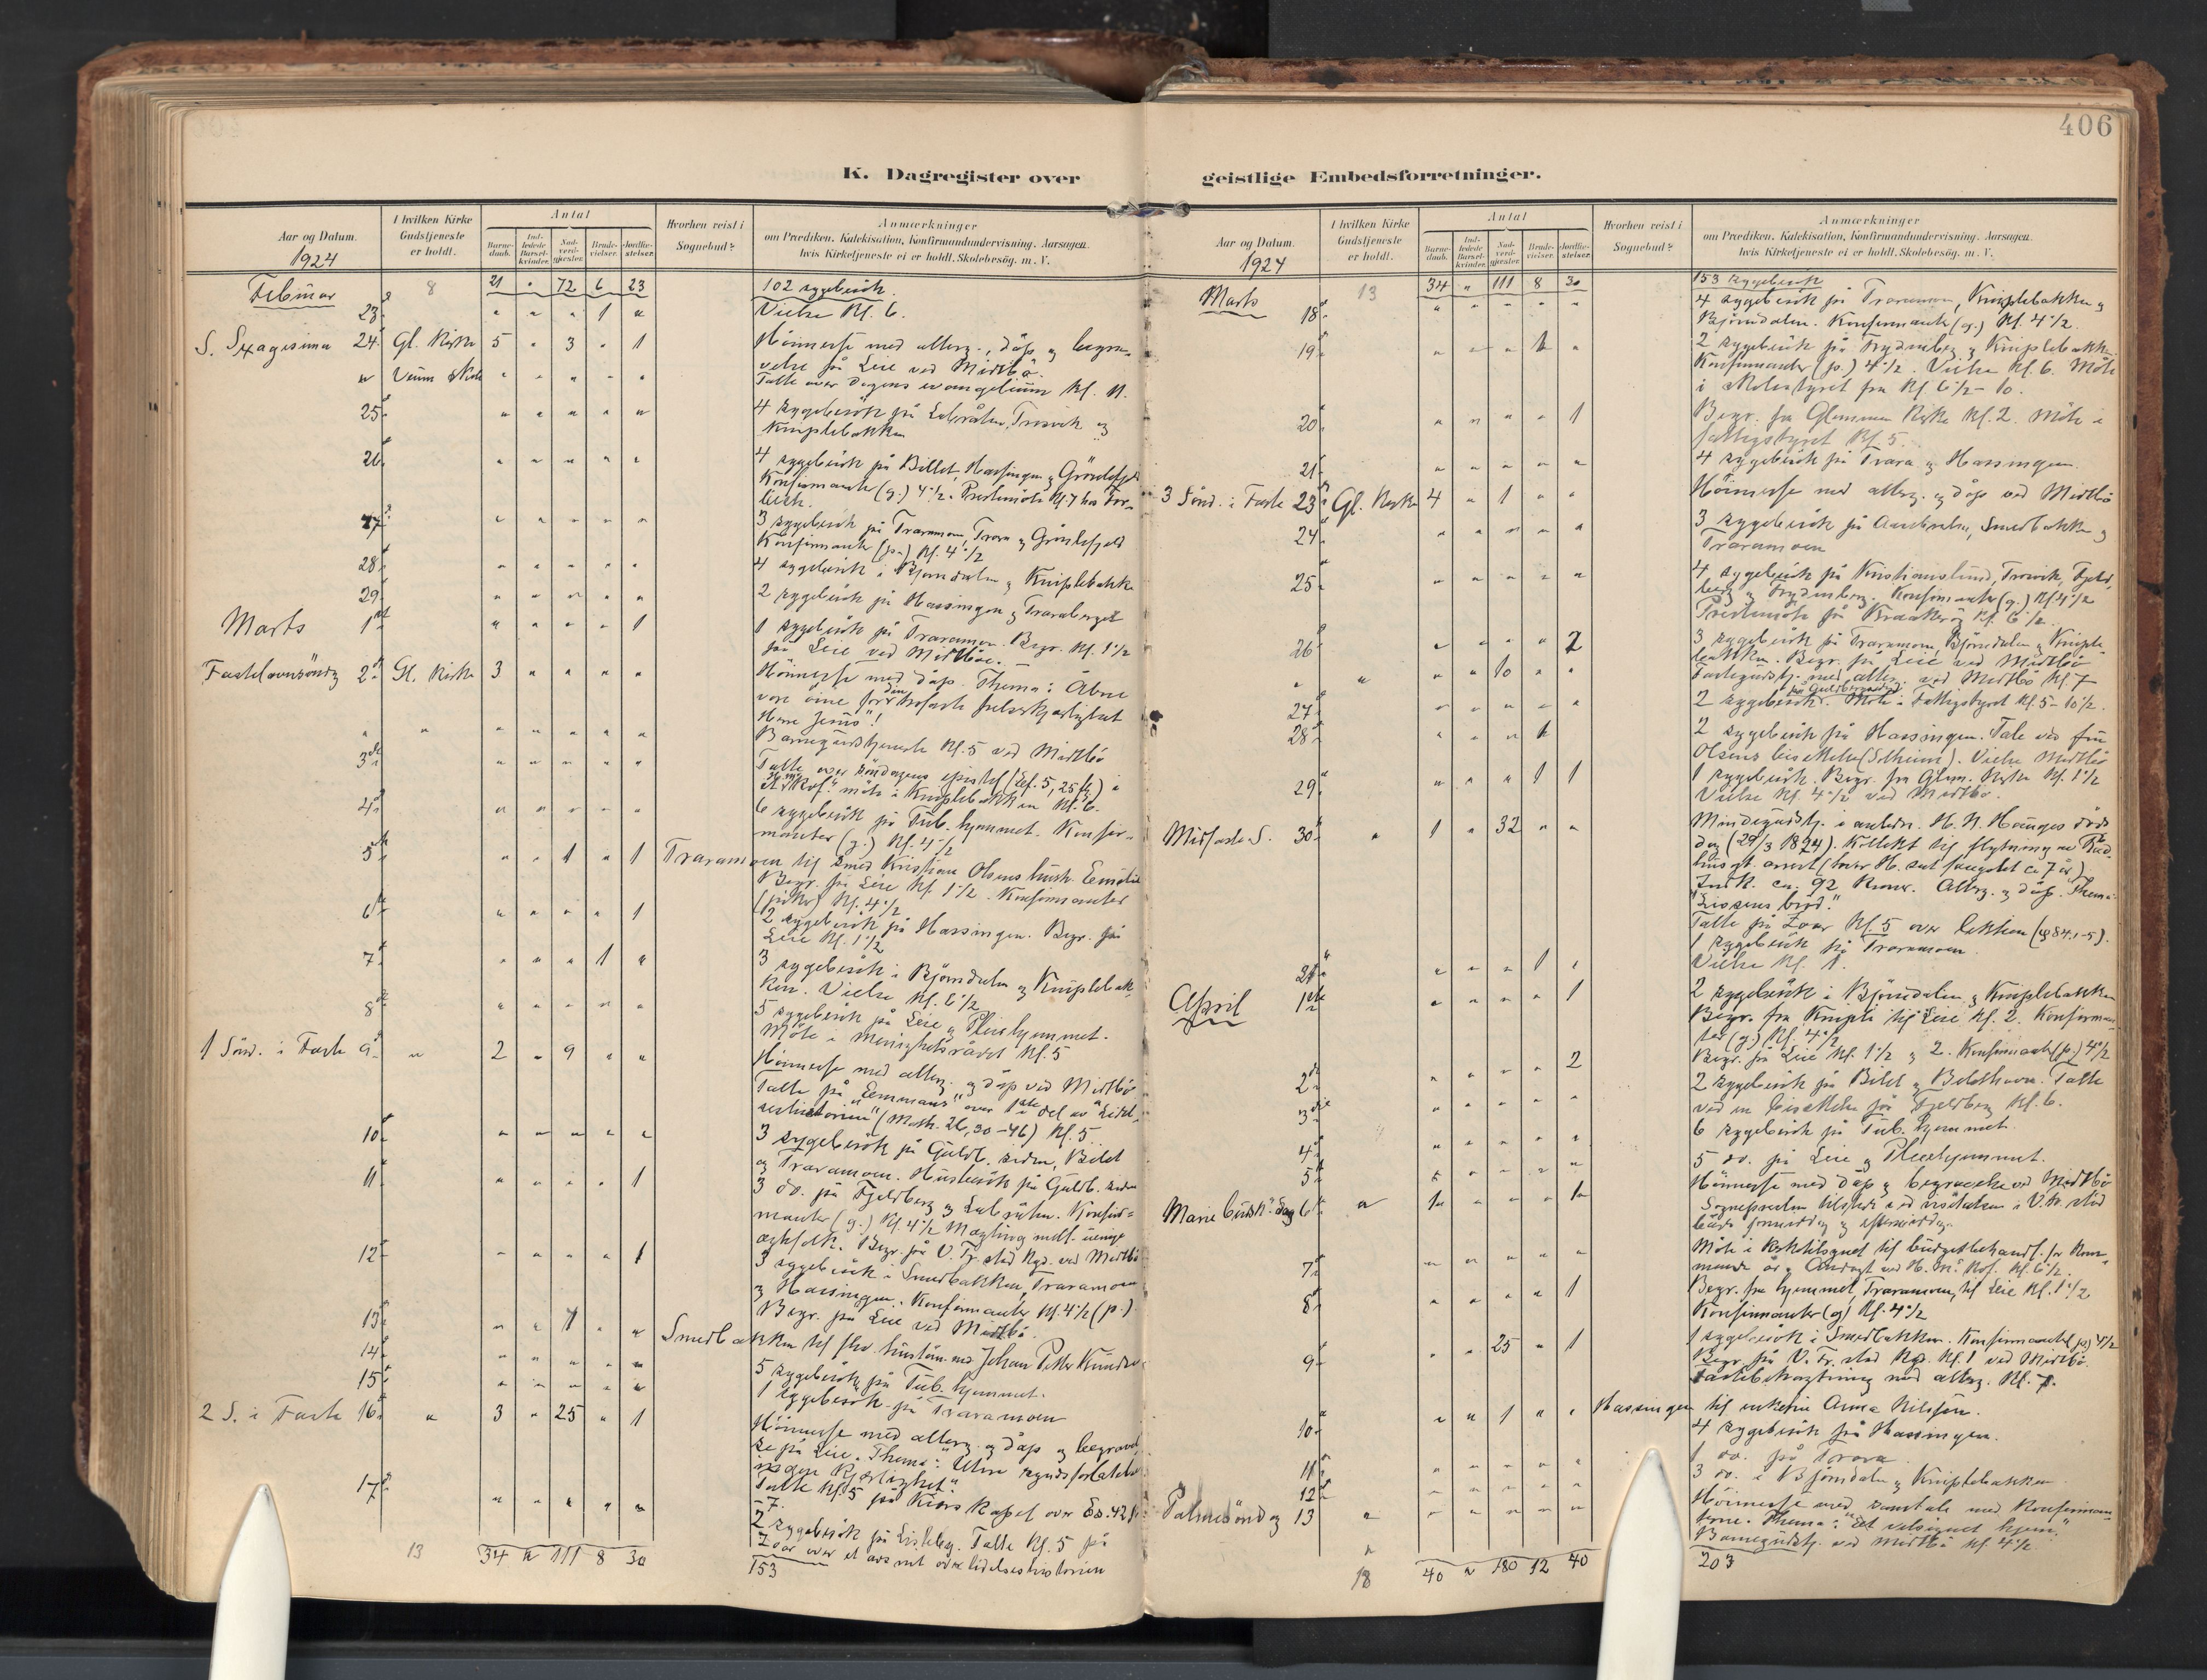 406
K. Dagregister over geistlige Embedsforretninger.
Aar og Datum.
1924
I hvilken Kirke Gudstjeneste er holdt.
Antal
Barnedaab.
Indledede Barselkvinder.
Nadverdgjester.
Brudevielser.
Jordfæstelser.
Hvorhen reist i Sognebud?
Anmærkninger
om Prædiken, Katekisation, Konfirmandundervisning. Aarsagen, hvis Kirketjeneste ei er holdt. Skolebesøg. m. V.
Februar 8 21 " 72 6 23 102 sygebesök.
23 " " " 1 " Vielse Kl. 6.
S. Sexagesima 24 Gl. Kirke 5 " 3 " 1 Höimesse med alterg., dåp og begra-
velse på Leie ved Mirtbö.
" Veum skole " " " " " Talte over dagens evangelium Kl. 11.
25 " " " " " 4 sygebesök på Labråten, Trosvik og
Kniplebakken
26 " " " " " 4 sygebesök på Billet, Hassingen og Grönlifjeld
Konfirmanter (g.) 4 1/2. Prestemöte Kl. 7 hos
27 " " " " " 3 sygebesök på Traramoen, Trara og Grönlifjeld
Konfirmanter (p.) Kl. 4 1/2
28 " " " " " 4 sygebesök i Bjørndalen og Kniplebakken
29 " " " " " 2 sygebesök på Hassingen og Traraberget
Marts 1 " " " " 1 1 sygebesök på Traramoen. Begr. Kl. 1 1/2
på Leie ved Mirtbö.
Fastelavnsöndag 2 Gl. Kirke 3 " " " " Höimesse med dåp. Thema: Åbne
vore öine for den trofaste frelserkjærlighet
Herre Jesus"!
" " " " " " " Barnegudstjeneste Kl. 5 ved Mirtbö
3 " " " " " Talte over söndagens epistel i
möte i Kniplebakken Kl. 6.
4 " " " " " 6 sygebesök på Tub. hjemmet. Konfir-
manter (g.) Kl. 4 1/2
5 " " 1 " 1 Traramoen til smed Kristian Olsens hustr. Emilie
Begr. på Leie Kl. 1 1/2. Konfirmanter
(piker) Kl. 4 1/2
6 " " " " 1 2 sygebesök på Hassingen. Begr. på
Leie Kl. 1 1/2
7 " " " 1 " 3 sygebesök i Bjørndalen og Kniplebak-
ken. Vielse Kl. 6 1/2
8 " " " " " 5 sygebesök på Leie og Pleiehjemmet.
Möte i Menighetsrådet Kl. 5
1 Sönd. i Faste 9 " 2 " 9 " " Höimesse med alterg. og dåp ved Mirtbö
Talte på "Emmaus" over 1ste del av "Lidel-
seshistorien" (Math. 26, 30-46) Kl. 5
10 " " " " " 3 sygebesök på Guldb. siden, Bilet
og Traramoen. Husbesök på Guldb. siden
11 " " " " 1 3 do. på Fjeldberg og Labråten. Konfir-
manter (g.) Kl. 4 1/2 Mægling mell. uenige
ægtefolk. Begr. på V. Fr. stad Kgd. ved Mirtbö
12 " " " " 1 3 sygebesök i Smedbakken, Traramoen
og Hassingen. Konfirmanter Kl. 4 1/2 (p.)
Begr. på Leie ved Mirtbö.
13 " " 1 " " Smedbakken til Johan Petter
14 " " " " " 5 sygebesök på Tub. hjemmet.
15 " " " " " 1 sygebesök på Traramoen
2 S. i Faste 16 " 3 " 25 " 1 Höimesse med alterg. og dåp og begravel-
se på Leie. Thema: Uten syndsforlatelse
ingen Kjærlighet".
Talte Kl. 5 på Kirs Kapel over Es. 42
17 " " " " " 2 sygebesök på Lisleby. Talte Kl. 5 på
Zoar over et avsnit av lidelseshistorien
13 34 " 111 8 30 153
Aar og Datum.
1924
I hvilken Kirke Gudstjeneste er holdt.
Antal
Barnedaab.
Indledede Barselkvinder.
Nadverdgjester.
Brudevielser.
Jordfæstelser.
Hvorhen reist i Sognebud?
Anmærkninger
om Prædiken, Katekisation, Konfirmandundervisning. Aarsagen, hvis Kirketjeneste ei er holdt. Skolebesøg. m. V.
Marts 13 34 " 111 8 30 153 sygebesök
18 " " " " " 4 sygebesök på Traramoen, Kniplebakken og
Björndalen. Konfirmanter (g.) Kl. 4 1/2.
19 " " " 1 " 2 sygebesök på Frydenberg og Kniplebakken.
Konfirmanter (p.) 4 1/2. Vielse Kl. 6. Möte
i skolestyret fra Kl 6 1/2 - 10.
20 " " " " 1 Begr. fra Glemmen Kirke Kl. 2. Möte i
fattigstyret Kl. 5.
21 " " " " " 4 sygebesök på Trara og Hassingen.
3 Sönd. i Faste 23 Gl. Kirke 4 " 1 " " Höimesse med alterg. og dåp ved Mirtbö
24 " " " " " 3 sygebesök på Smedbakken og
Traramoen
25 " " " " " 4 sygebesök på Kristianslund, Trosvik, Fjeld-
berg og Frydenberg. Konfirmanter (g.) Kl 4 1/2
Prestemöte på Kraakeröy Kl. 6 1/2.
26 " " " " 2 3 sygebesök på Traramoen, Björndalen og Kniple-
bakken. Begr. på Leie ved Mirtbö
" " " " 10 " " Fastegudstj. med alterg. ved Mirtbö Kl. 7
27 " " " " " 2 sygebesök på Guldbergsiden. Möte i Fattigstyret Kl. 5-10 1/2.
28 " " " 1 2 sygebesök på Hassingen. Tale ved fru
Olsens (Solheim). Vielse Mirtbö
29 " " " 1 1 1 sygebesök. Begr. fra Glem. Kirke Kl. 1 1/2
Vielse Kl. 4 1/2 ved Mirtbö.
Midfaste S. 30 " 1 " 32 " " Mindegudstj. i anledn. H. N. Hauges döds
dag (29/3 1824). Kollekt til flytning av Råd-
husgt. arrest (hvor H. sat fængslet ca 7 år)
Indk. ca. 92 Kroner. Alterg. og dåp. Thema:
"Livsens bröd."
Talte på Zoar Kl. 5 over lektien (ψ 84.1-5).
1 sygebesök på Traramoen.
31 " " " 1 " Vielse Kl. 1.
April 1ste " " " " 1 2 sygebesök i Björndalen og Kniplebakken
Begr. fra Kniple til Leie Kl. 2. Konfirman-
ter (g.) Kl. 4 1/2
2 " " " " 2 Begr. på Leie Kl. 1 1/2 og 2. Konfirmanter (p.) 4 1/2
3 " " " " " 2 sygebesök på Bilet og Bildthavn. Talte
ved en på Fjeldberg Kl. 6.
4 " " " " " 6 sygebesök på Tub. hjemmet.
5 " " " " " 5 do. på Leie og Pleiehjemmet.
Marie budsk. dag 6 " 1 " " " 1 Höimesse med dåp og begravelse ved Mirtbö
Sognepresten tilstede ved visitatsen i V. Fr. stad
både formiddag og eftermiddag.
7 " " " " " Möte i til budgetbehandl. for Kom-
mende år. Andagt ved H. m. Kof. Kl. 6 1/2.
8 " " " " 1 Begr. fra hjemmet, Traramoen, til Leie Kl. 1 1/2
Konfirmanter (g) Kl. 4 1/2
9 " " 25 " 1 1 sygebesök i Smedbakken. Konfirmanter (p) 4 1/2
Begr. på V. Fr. stad Kgd. Kl. 1 ved Mirtbö.
Fastebetragtning med alterg. Kl. 7.
10 " " 1 " " Hassingen til enkefru Anna Nilssen.
4 sygebesök på Hassingen.
11 " " " " " 1 do. på Trara
12 " " " " " 3 do. i Björndalen og Kniplebakken
Palmesöndag 13 " " " " " " Höimesse med samtale med Konfirman-
terne. Thema: "Et velsignet hjem."
" Barnegudstj. ved Mirtbö Kl. 4 1/2
18 40 " 180 12 40 203